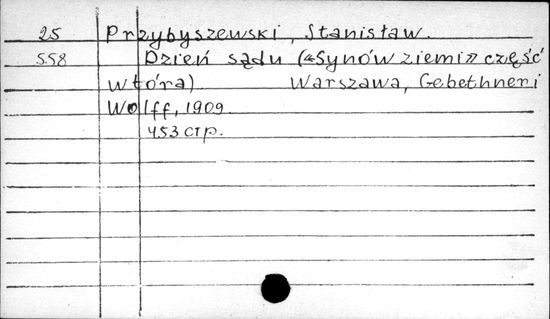 25 Przybyszewski, Stanisław.
558 Dzień sądu («Synów ziemi» część
wtóra) Warszawa, Gebethner i
Wolff, 1909.
453 стр.